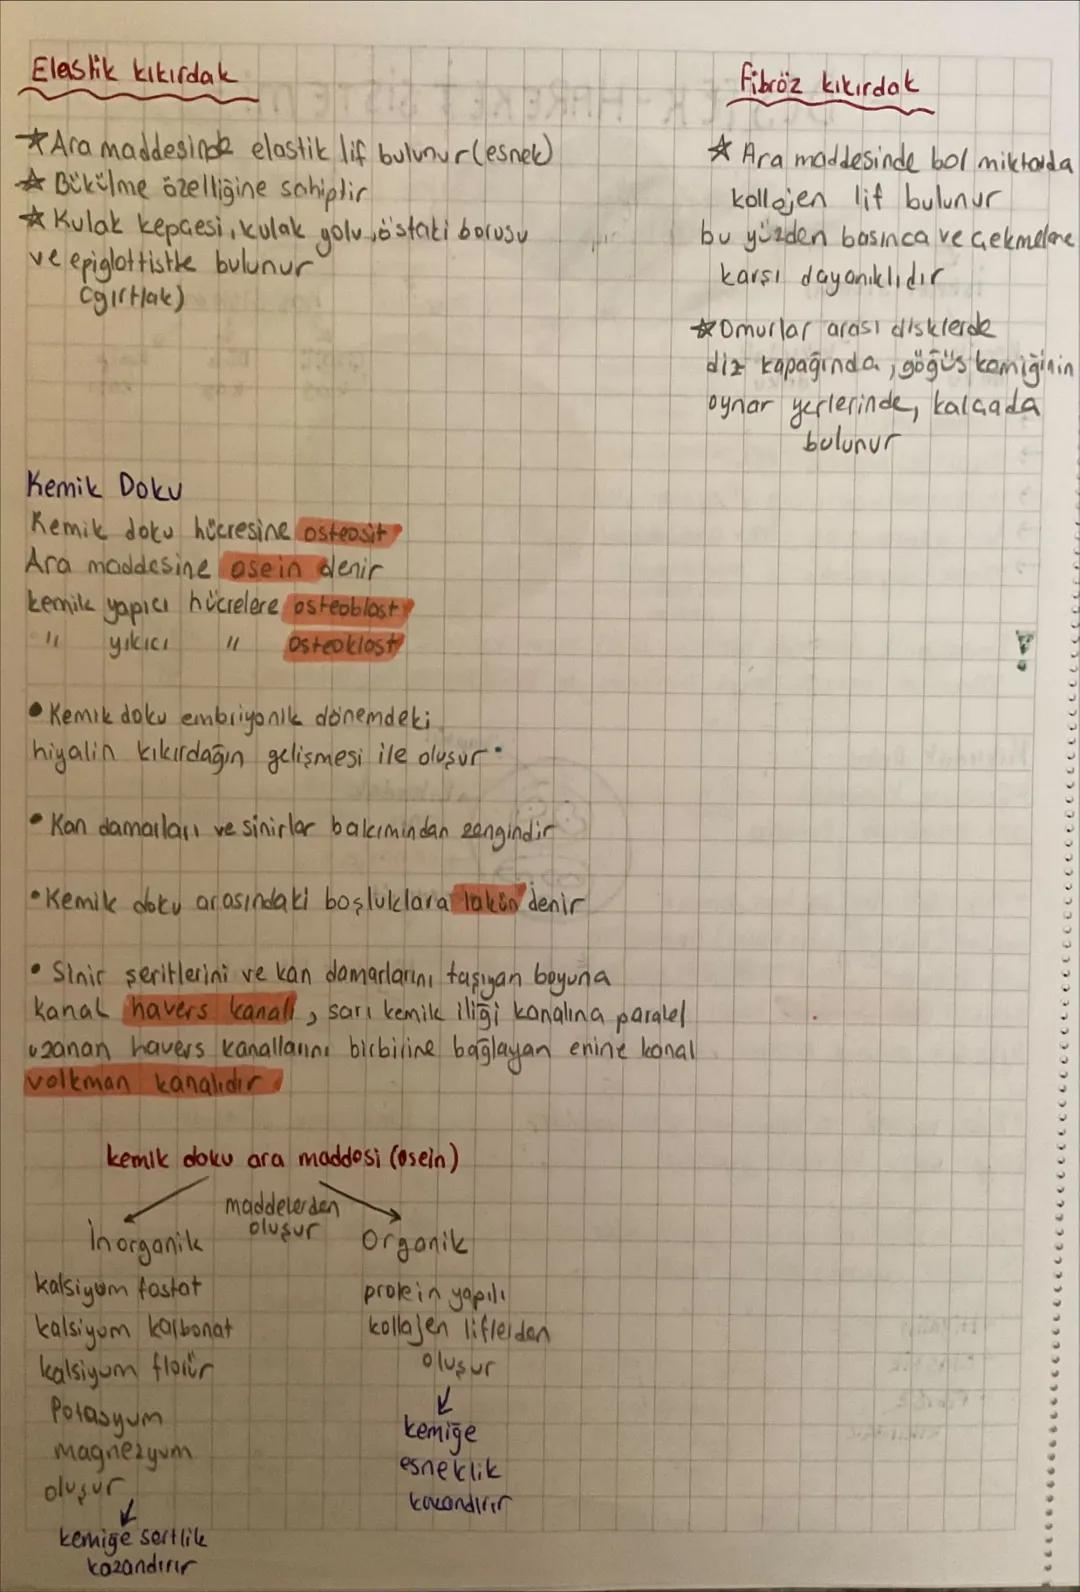 Elastik kıkırdak
☆ Ara maddesinde elastik lif bulunur (esnek)
☆ Bükülme özelliğine sahiptir
☆ Kulak kepçesi, kulak yolu, östaki borusu
ve epiglottiste bulunur
(gırtlak)
Fibröz kıkırdak
☆ Ara maddesinde bol miktarda
kollojen lif bulunur
bu yüzden basınca ve çekmelere
karşı dayanıklıdır
☆ Omurlar arası disklerde
diz kapağında, göğüs kemiğinin
oynar yerlerinde, kalçada
bulunur
Kemik Doku
Kemik doku hücresine osteosit
Ara maddesine osein denir
kemik yapıcı hücrelere osteoblast
" yıkıcı " osteoklast
!
• Kemik doku embriyonik dönemdeki
hiyalin kıkırdağın gelişmesi ile oluşur.
• Kan damarları ve sinirler bakımından zengindir
• Kemik doku arasındaki boşluklara lakün denir
• Sinir şeritlerini ve kan damarlarını taşıyan boyuna
kanal havers kanalı, sarı kemik iliği kanalına paralel
uzanan havers kanallarını birbirine bağlayan enine kanal
volkman kanalıdır
kemik doku ara maddesi (osein)
maddelerden
oluşur
İnorganik
kalsiyum fosfat
kalsiyum karbonat
kalsiyum florür
Potasyum
magnezyum
oluşur
kemiğe sertlik
kazandırır
Organik
protein yapılı
kollajen liflerden
oluşur
kemiğe
esneklik
kazandırır